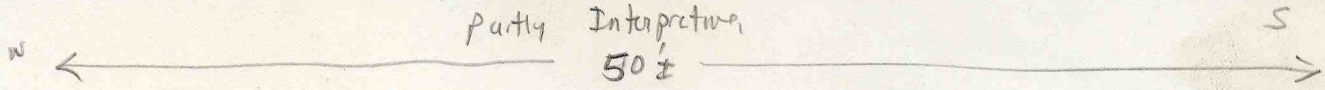 Partly Interpretive
N S
50'±